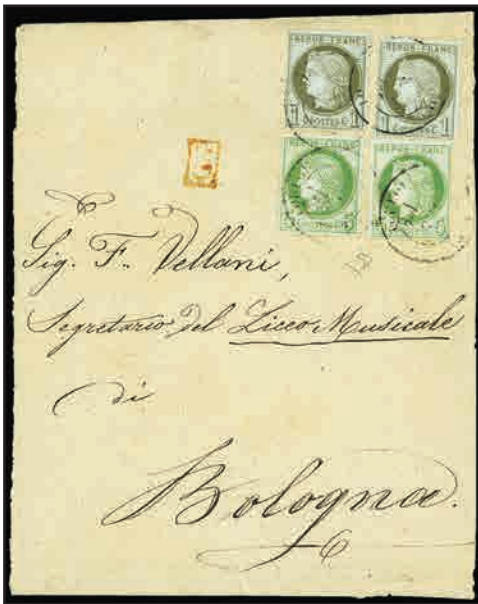 REPUB·FRANC
REPUB·FRANC
1 POSTES 1
REPUB·FRANC
REPUB·FRANC
Sig. F. Vellani,
Segretario del Liceo Musicale
di
Bologna.